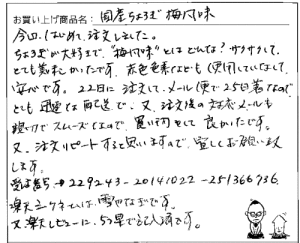 お買い上げ商品名：国産ちょうざ 梅風味
今回、はじめて、注文しました。
ちょうざが大好きで、"梅風味"とはどんな？サクサクして、
とても美味しかったです。赤色色素なども使用していなくて、
安心です。22日に注文して、メール便で25日着なので、
とても迅速な配送で、又、注文後のメールも
スムーズなので、買い物をして良かったです。
又、注文リピートすると思いますので、宜しくお願い致
します。
受注番号→229243-20141022-251366936
楽天ニックネームは、です。
又楽天レビューに、5つ星で記入済です。